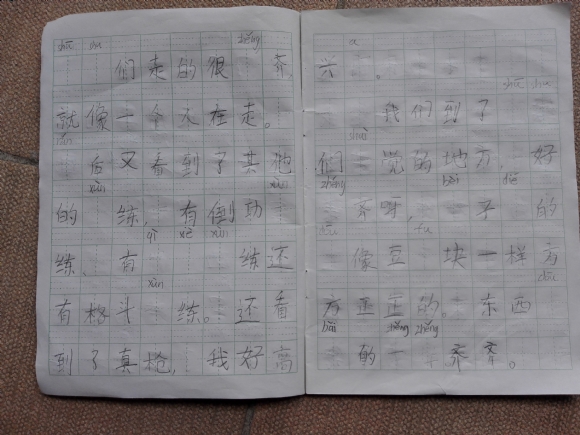 shū shu zhěng
们走的很 齐,
就像一个人在走。
rán
后又看到了其他
xùn xùn
的 练,有倒功
qì xiè xùn
练、有 练还
xùn
有格斗 练。还看
到了真枪,我好高
a
兴 。
shū shu
我们到了
shuì
们 觉的地方,好
zhěng bèi dié
齐呀, 子 的
fu
像豆 块一样方
dōu
方正正的。东西
bǎi zhěng zhěng
的 齐齐。